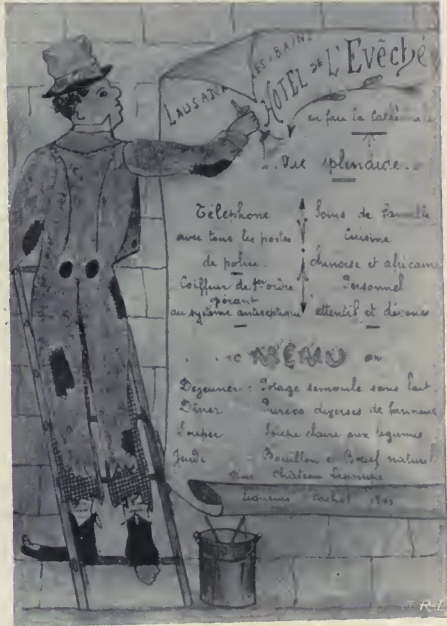 LAUSANNE-LES-BAINS
HOTEL DE L'Evêché
en face la Cathé
Vue splendide
Téléphone
avec tous les postes
de police
Coiffeur de 1er ordre
opérant
au système antiseptique
Soins de famille
Cuisine
chinoise et africaine
Personnel
attentif et dévoué
MENU
Dejeuner : Potage semoule sans lait
Dîner Purées diverses de
Souper Soupe claire aux légumes
Jeudi Bouillon et Bœuf naturel
Château
Liqueurs Cachot